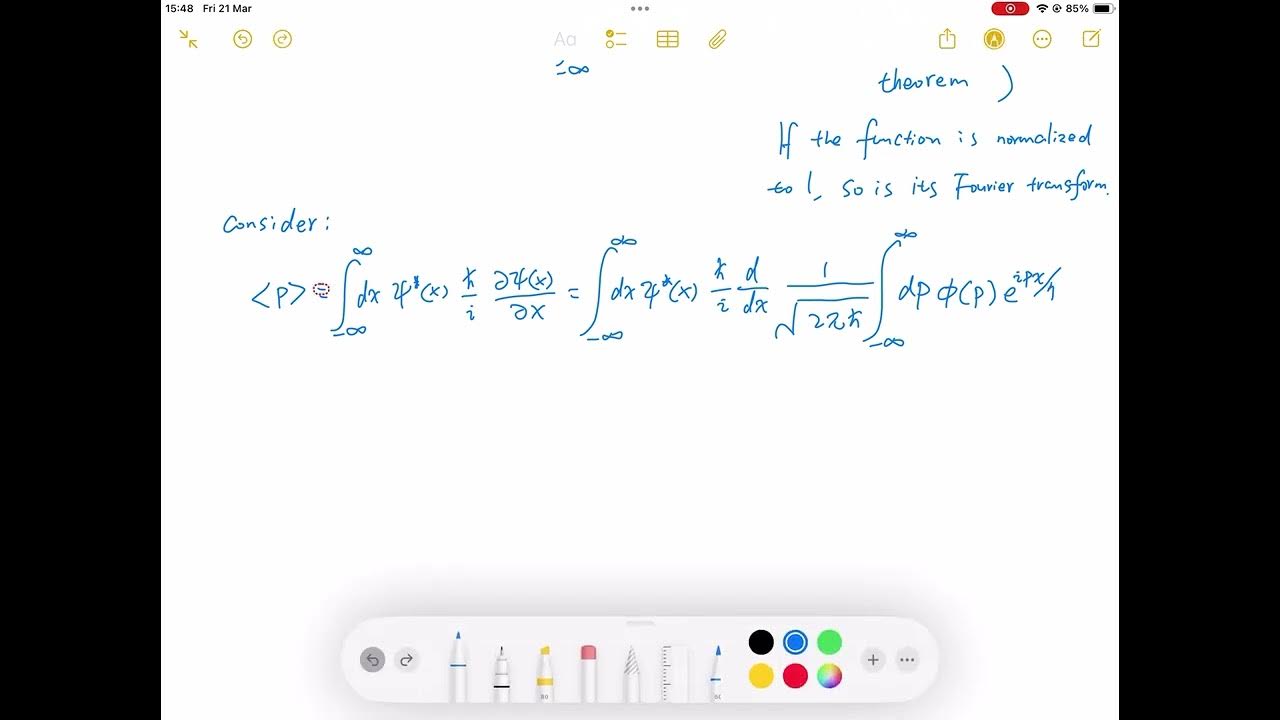 15:48 Fri 21 Mar 85%
Aa
-∞
theorem )
If the function is normalized
to 1, so is its Fourier transform.
Consider:
<p> = ∫_{-∞}^{∞} dx ψ*(x) ħ/i ∂ψ(x)/∂x = ∫_{-∞}^{∞} dx ψ*(x) ħ/i d/dx 1/√(2πħ) ∫_{-∞}^{∞} dp ϕ(p) e^{ipx/ħ}
80